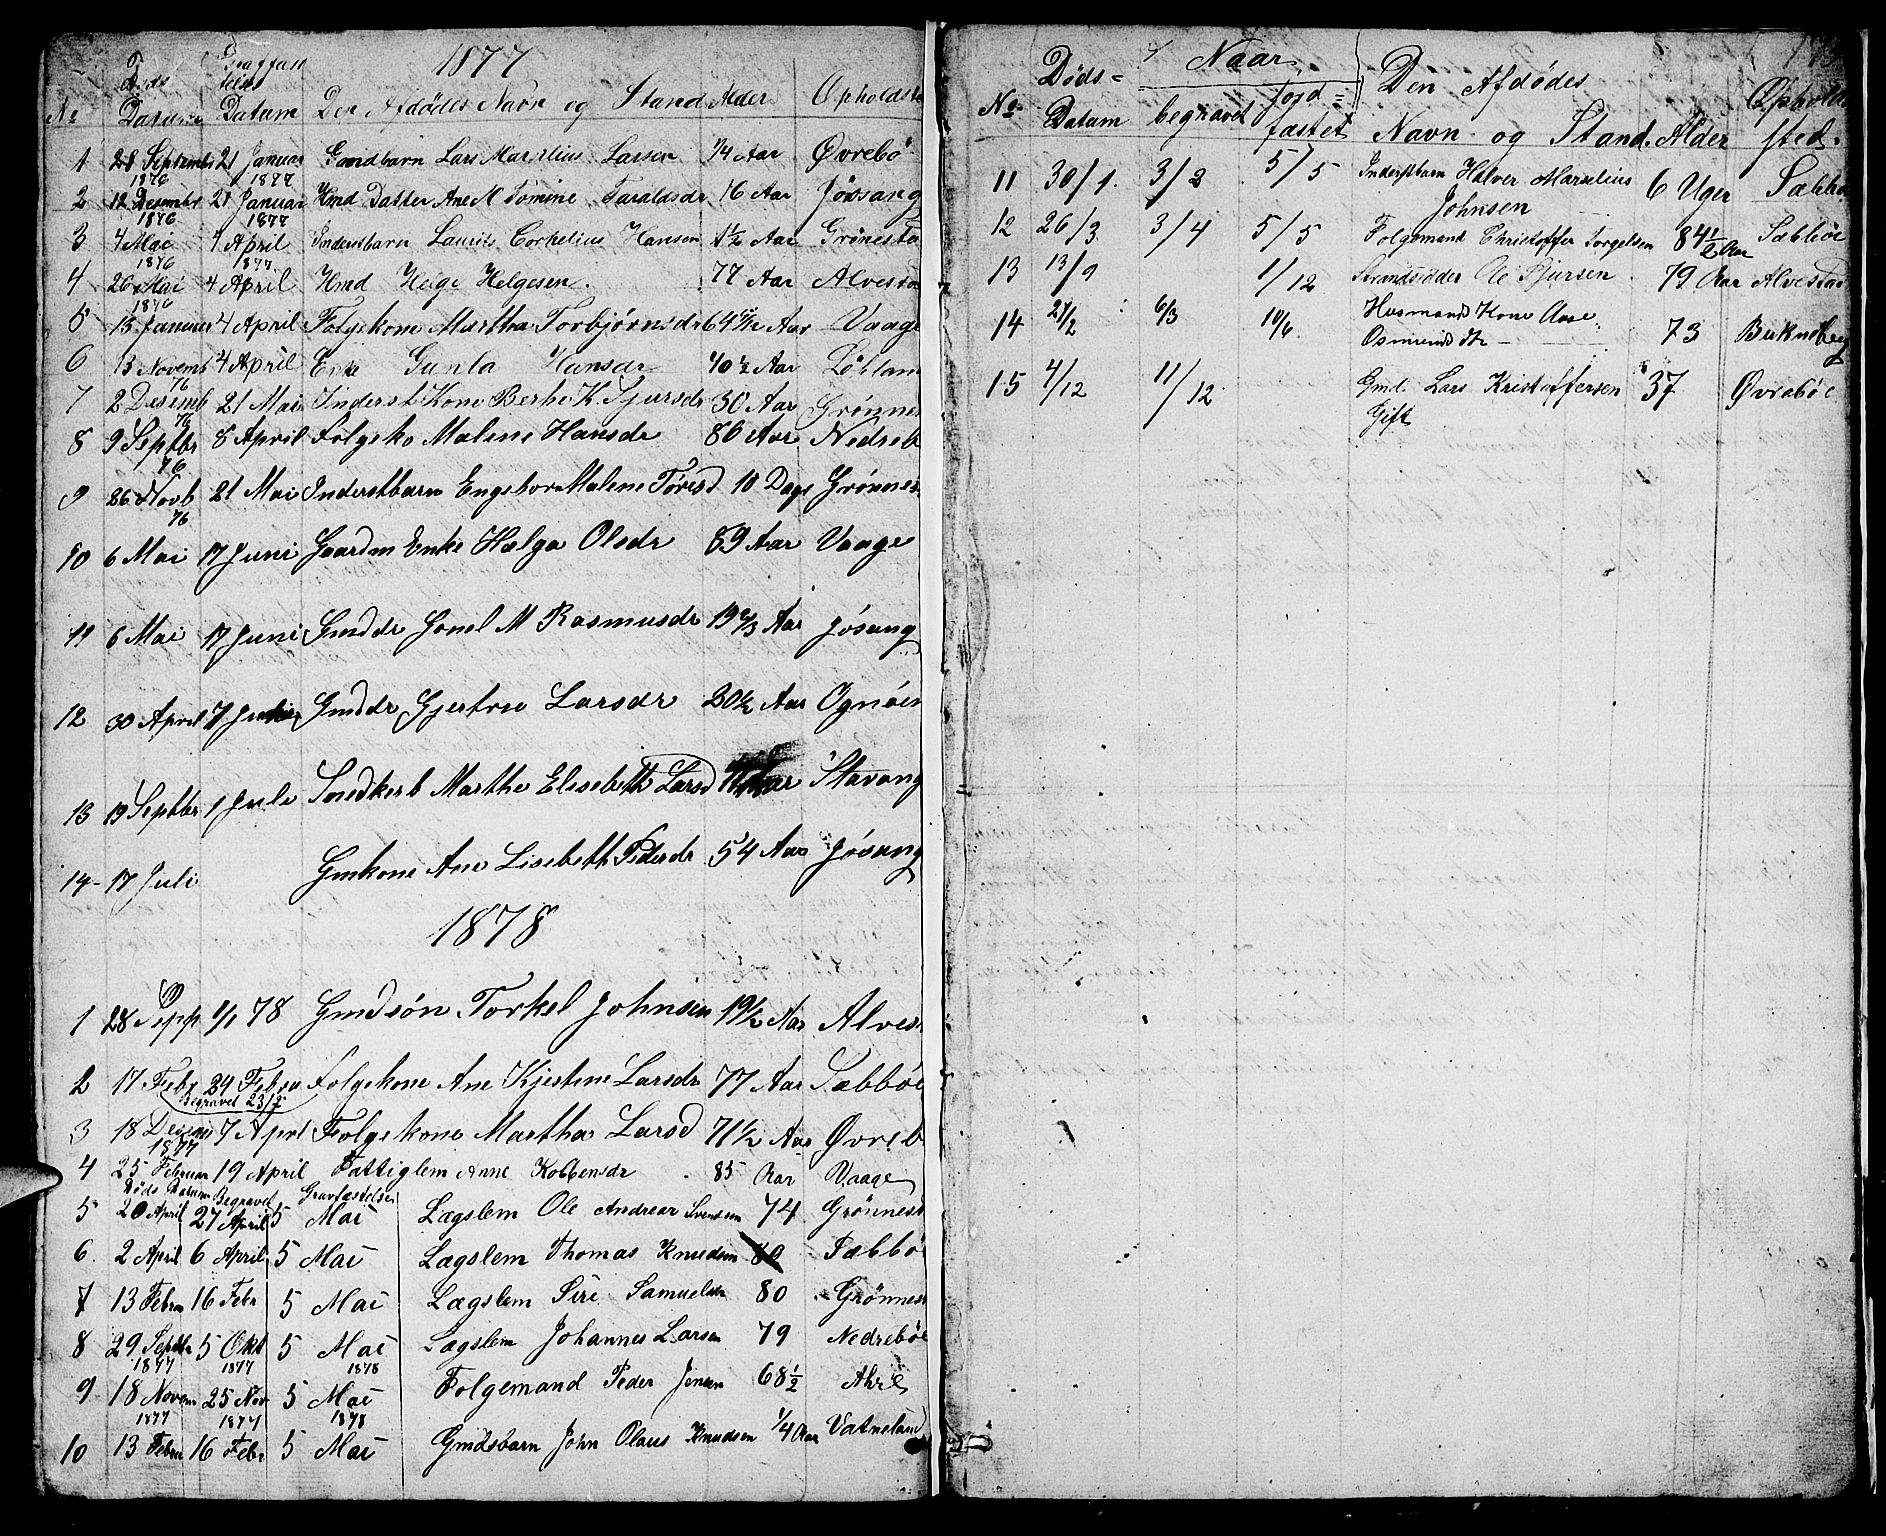 1877
No Döds Datum Datum Den Afdödes Navn og Stand Alder Opholdst
1 28 September 1876 21 Januar 1877 Gmdbarn Lars Marselius Larsen 1/4 Aar Øvrebö
2 12 Desember 1876 21 Januar 1877 Hmd Datter Ane M Tomine Taraldsdr 16 Aar Jösang
3 4 Mai 1876 4 April 1877 Inderstbarn Laurits Cornelius Hansen 1 1/2 Aar Grönesta
4 26 Mai 1876 4 April Hmd Helge Helgesen. 77 Aar Alvesta
5 13 Januar 4 April Folgekone Martha Torbjörnsdr Aar Vaage
6 13 Novemb 76 4 April Enke Gunla Hansdr 70 1/2 Aar Löbland
7 2 Desemb 76 21 Mai Inderst Kone Berthe K. Sjursdr 30 Aar Grönnes
8 9 Septbr 76 8 April Folgeko Malene Hansdr 86 Aar Nedreb
9 26 Novb 76 21 Mai Inderstbarn Engebor Malene Töresd 10 Dage Grönnes
10 6 Mai 17 Juni Gaardm Enke Helga Olsdr 89 Aar Vaage
11 6 Mai 17 Juni Gmddr Gonel M Rasmusdr 19 2/3 Aar Jösang
12 30 April Gmddr Gjertru Larsdr 20 1/2 Aar Ognöen
13 19 Septbr 1 Juli Snedkerb Marthe Elisebeth Larsd Aar Stavang
14 17 Juli Gmkone Ane Lisebeth Pedersdr 54 Aar Jösang
1878
1 28 Sepp 1/1 78 Gmdsön Torkel Johnsen 19 1/2 Aar Alves
2 17 Febr 24 Februa Folgekone Ane Kjestine Larsdr 77 Aar Sæbböe
Begravet 23/2
3 18 Desemb 1877 7 April Folgekone Martha Larsd 71 1/2 Aar Øvreb
4 25 Februar 19 April Fattiglem Anne Kolbensdr 85 Aar Vaage
Döds Datum Begravet Gravfæstelsen
5 20 April 27 April 5 Mai Lægslem Ole Andreas Svensen 74 Grönnest
6. 2 April 6 April 5 Mai Lægslem Thomas Knudsen 80 Sæbbö
7 13 Febru 16 Febr 5 Mai Lægslem Siri Samuelsdr 80 Grönnest
8 29 Septbr 1877 5 Okt 1877 5 Mai 1878 Lægslem Johannes Larsen 79 Nedreböe
9 18 Novem 1877 25 Nov 1877 5 Mai 1878 Folgemand Peder Jensen 68 1/2
10 13 Febru 16 Febr 5 Mai Gmdsbarn John Olaus Knudsen 1/4 Aar Vatneland
Döds= Naar Den Afdödes
No Datum begravet Jord=fæstet Navn og Stand. Alder Opholdsted.
11 30/1. 3/2 5/5 Inderstbarn Halver Marselius Johnsen 6 Uger Sæbbö
12 26/3 3/4 5/5 Folgemand Christoffer Torgelsen 84 1/2 Aar Sæbböe
13 13/9 1/12 Strandsidder Ole Sjursen 79 Aar Alvestad
14 27/2 6/3 10/6. Husmands Kone Aase Osmundsdtr 73 Bukneberg
15 4/12 11/12 Gmd. Lars Kristoffersen Gift 37 Øvreböe